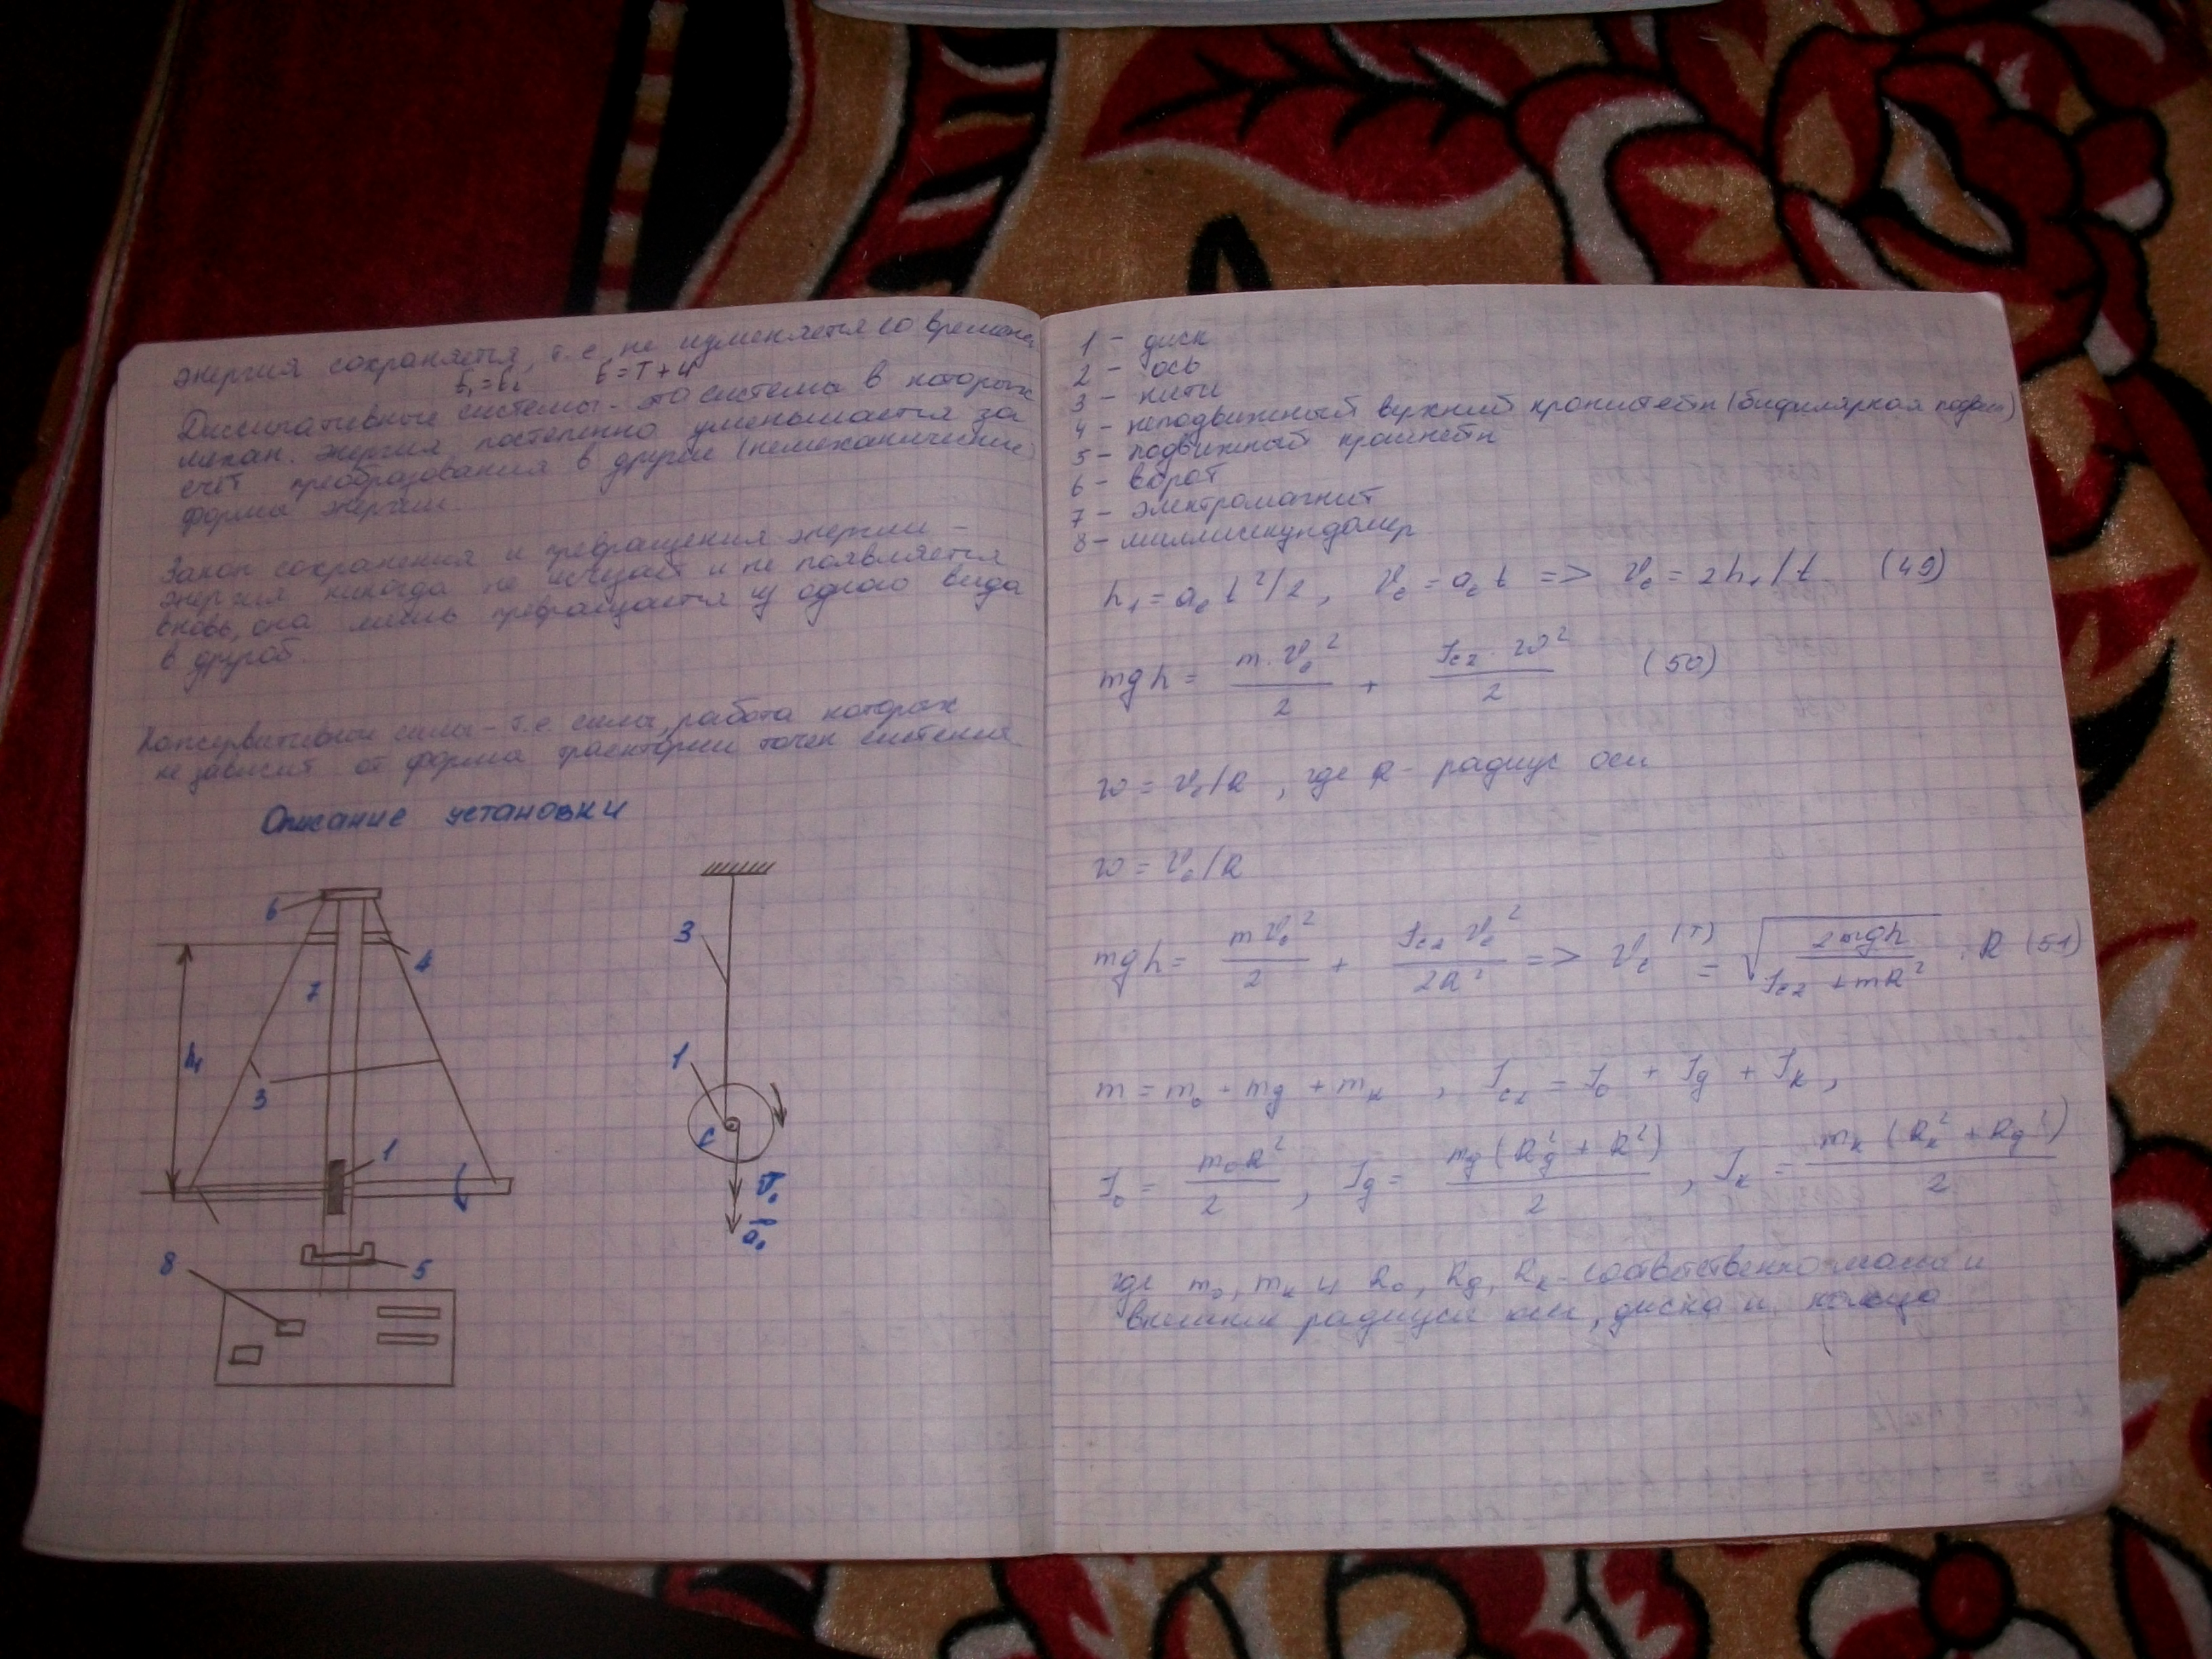 энергия сохраняется, т.е. не изменяется со времене
E₁=E₂ E=T+U
Диссипативные системы - это система в которых
механ. энергия постепенно уменьшается за
счёт преобразования в другие (немеханические)
формы энергии.
Закон сохранения и превращения энергии -
энергия никогда не исчезает и не появляется
вновь, она лишь превращается из одного вида
в другой.
Консервативные силы - т.е. силы, работа которых
не зависит от форма траектории точек системы.
Описание установки
6
4
7
h₁
3
1
8
5
3
1
C
v̄₀
ā₀
1 - диск
2 - ось
3 - нити
4 - неподвижный верхний кронштейн (бифилярная подвес)
5 - подвижный кронштейн
6 - ворот
7 - электромагнит
8 - миллисекундомер
h₁ = a_c t²/2, v_c = a_c t => v_c = 2h₁/t (49)
mgh = m·v_c²/2 + J_cz·ω²/2 (50)
ω = v_c/R, где R - радиус оси
ω = v_c/R
mgh = mv_c²/2 + J_cz v_c²/2R² => v_c^(T) = √(2mgh/(J_cz + mR²)) · R (51)
m = m₀ + m_д + m_к, J_cz = J₀ + J_д + J_к,
J₀ = m₀R²/2, J_д = m_д(R_д² + R²)/2, J_к = m_к(R_к² + R_д²)/2
где m₀, m_к и R₀, R_д, R_к - соответственно массы и
внешние радиусы оси, диска и кольца